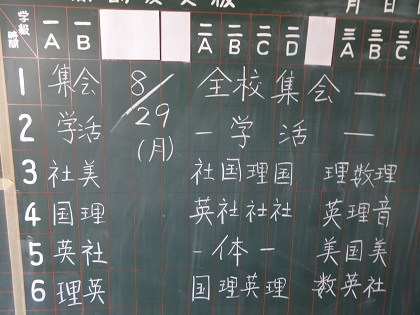 月 日
学級 一A 一B 二A 二B 二C 二D 三A 三B 三C
時間
1 集会 8/29(月) 全校集会 ―
2 学活 ― 学 活 ―
3 社美 社国理国 理数理
4 国理 英社社社 英理音
5 英社 - 体 - 美国美
6 理英 国理英理 数英社